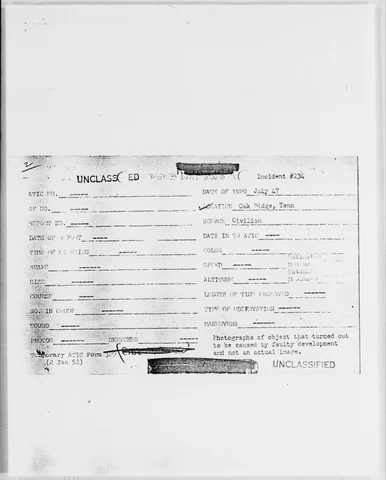 2
UNCLASS ED Incident #234
ATIC NO. ----- DATE OF INFO July 47
AF NO. ----- LOCATION Oak Ridge, Tenn
REPORT NO. ----- SOURCE Civilian
DATE OF REPORT ----- DATE IN TO ATIC ----
TIME OF SIGHTING ----- COLOR -----
SHAPE ----- SPEED -----
SIZE ----- ALTITUDE -----
COURSE ----- LENGTH OF TIME OBSERVED -----
NO. IN GROUP ----- TYPE OF OBSERVATION -----
SOUND ----- MANEUVERS -----
PHOTOS ----- SKETCHES -----
Photographs of object that turned out
to be caused by faulty development
and not an actual image.
Temporary ATIC Form 329
(2 Jan 52)
UNCLASSIFIED